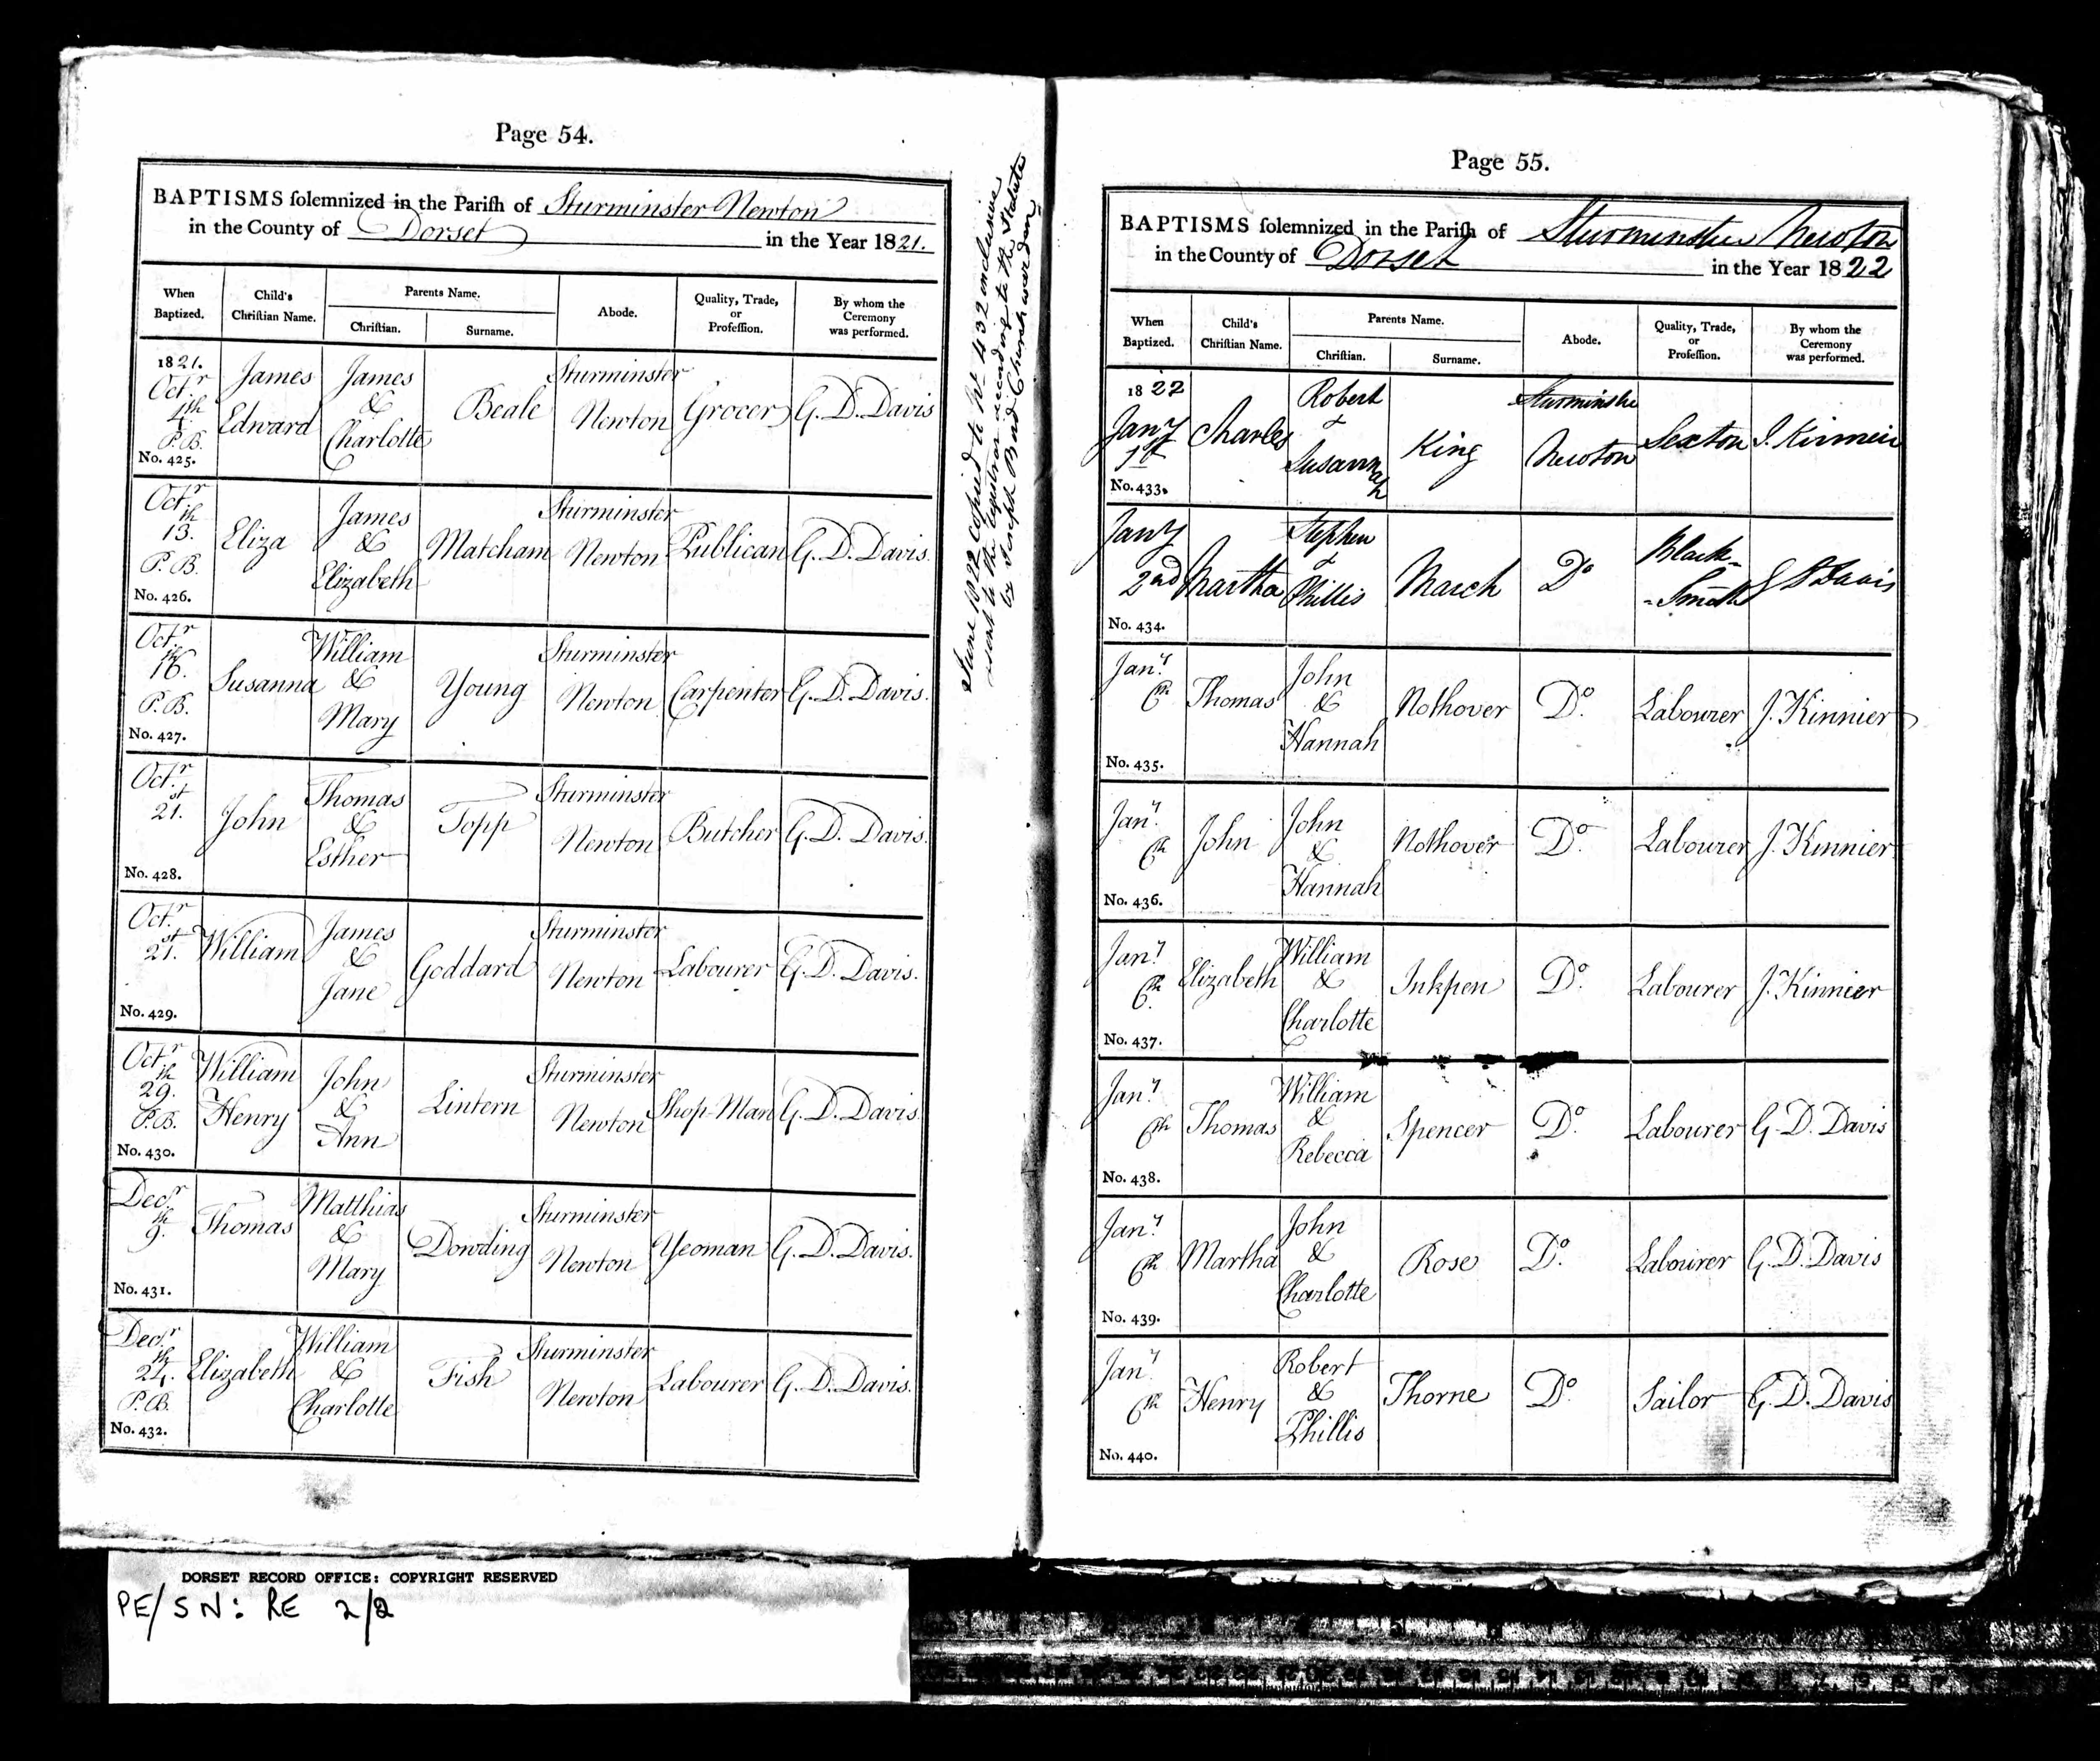 Page 54.
BAPTISMS solemnized in the Parish of Sturminster Newton
in the County of Dorset in the Year 1821.
When Baptized. Child's Christian Name. Parents Name. Christian. Surname. Abode. Quality, Trade, or Profession. By whom the Ceremony was performed.
1821. Octr. 4th P.B. No. 425. James Edward James & Charlotte Beale Sturminster Newton Grocer G. D. Davis
Octr. 13th. P.B. No. 426. Eliza James & Elizabeth Matcham Sturminster Newton Publican G. D. Davis.
Octr. 16th. P.B. No. 427. Susanna William & Mary Young Sturminster Newton Carpenter G. D. Davis.
Octr. 21st. No. 428. John Thomas & Esther Topp Sturminster Newton Butcher G. D. Davis.
Octr. 21st. No. 429. William James & Jane Goddard Sturminster Newton Labourer G. D. Davis.
Octr. 29th. P.B. No. 430. William Henry John & Ann Lintern Sturminster Newton Shop-Man G. D. Davis.
Decr. 9th. No. 431. Thomas Matthias & Mary Dowding Sturminster Newton Yeoman G. D. Davis.
Decr. 24th. P.B. No. 432. Elizabeth William & Charlotte Fish Sturminster Newton Labourer G. D. Davis.
June 1822 copied to No 432 inclusive
sent to the according to the Statute
by Joseph Bird Churchwarden
Page 55.
BAPTISMS solemnized in the Parish of Sturminster Newton
in the County of Dorset in the Year 1822
When Baptized. Child's Christian Name. Parents Name. Christian. Surname. Abode. Quality, Trade, or Profession. By whom the Ceremony was performed.
1822 Jany 1st No. 433. Charles Robert & Susannah King Sturminster Newton Sexton J. Kinnier
Jany 2nd No. 434. Martha Stephen & Phillis March Do Black-Smith G D Davis
Jany. 6th No. 435. Thomas John & Hannah Nothover Do. Labourer J. Kinnier
Jany. 6th No. 436. John John & Hannah Nothover Do. Labourer J. Kinnier
Jany. 6th. No. 437. Elizabeth William & Charlotte Inkpen Do. Labourer J. Kinnier
Jany 6th No. 438. Thomas William & Rebecca Spencer Do. Labourer G. D. Davis
Jany. 6th No. 439. Martha John & Charlotte Rose Do. Labourer G. D. Davis
Jany. 6th No. 440. Henry Robert & Phillis Thorne Do. Sailor G. D. Davis
DORSET RECORD OFFICE: COPYRIGHT RESERVED
PE/SN: RE 2/2